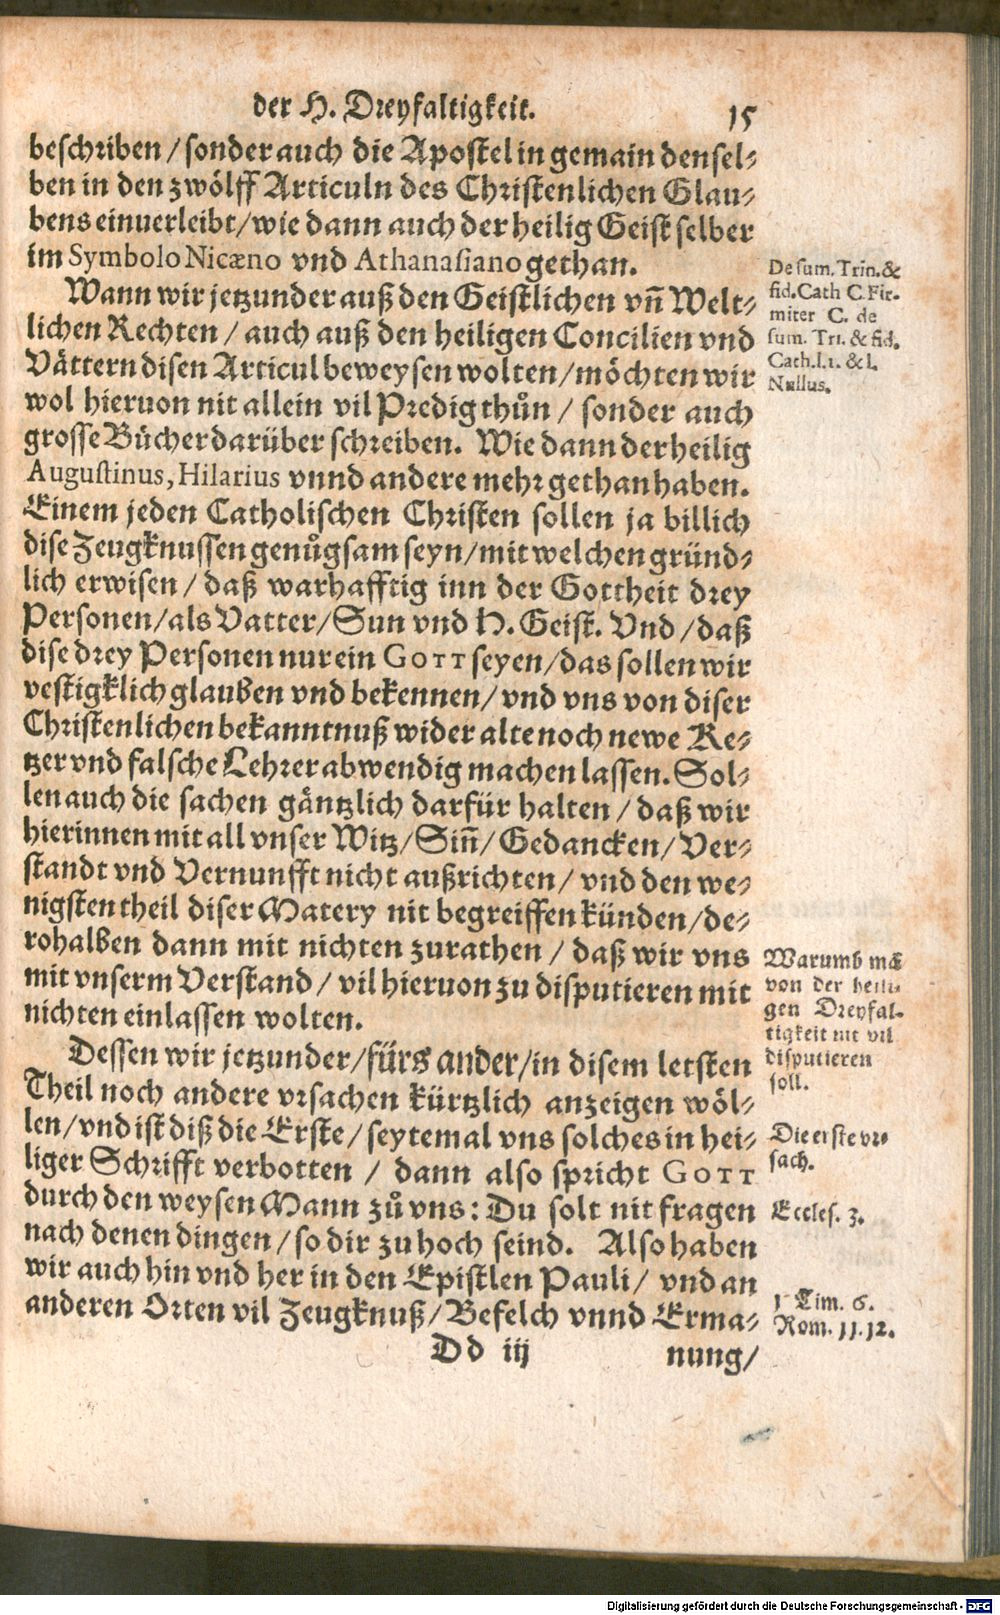 der H. Dreyfaltigkeit. 15
beschriben / sonder auch die Apostel in gemain densel-
ben in den zwölff Articuln des Christenlichen Glau-
bens einuerleibt/wie dann auch der heilig Geist selber
im Symbolo Nicæno vnd Athanasiano gethan.
Wann wir jetzunder auß den Geistlichen vñ Welt-
lichen Rechten / auch auß den heiligen Concilien vnd
Vättern disen Articul beweysen wolten/möchten wir
wol hieruon nit allein vil Predig thůn / sonder auch
grosse Bücher darüber schreiben. Wie dann der heilig
Augustinus, Hilarius vnnd andere mehr gethan haben.
Einem jeden Catholischen Christen sollen ja billich
dise Zeugknussen genůgsam seyn/mit welchen gründ-
lich erwisen / daß warhafftig inn der Gottheit drey
Personen/als Vatter/Sun vnd H. Geist. Vnd / daß
dise drey Personen nur ein GOTT seyen/das sollen wir
vestigklich glauben vnd bekennen/ vnd vns von diser
Christenlichen bekanntnuß wider alte noch newe Ke-
tzer vnd falsche Lehrer abwendig machen lassen. Sol-
len auch die sachen gäntzlich darfür halten / daß wir
hierinnen mit all vnser Witz/Siñ/ Gedancken/ Ver-
standt vnd Vernunfft nicht außrichten/ vnd den we-
nigsten theil diser Matery nit begreiffen künden/de-
rohalben dann mit nichten zurathen / daß wir vns
mit vnserm Verstand/ vil hieruon zu disputieren mit
nichten einlassen wolten.
Dessen wir jetzunder/fürs ander/in disem letsten
Theil noch andere vrsachen kürtzlich anzeigen wöl-
len/vnd ist diß die Erste/ seytemal vns solches in hei-
liger Schrifft verbotten / dann also spricht GOTT
durch den weysen Mann zů vns: Du solt nit fragen
nach denen dingen/so dir zu hoch seind. Also haben
wir auch hin vnd her in den Epistlen Pauli/ vnd an
anderen Orten vil Zeugknuß/Befelch vnnd Erma-
Dd iij nung/
De sum. Trin. &
fid. Cath C. Fir-
miter C. de
sum. Tri. & fid.
Cath. l.1. & l.
Nullus.
Warumb mã
von der heili-
gen Dreyfal-
tigkeit nit vil
disputieren
soll.
Die erste vr-
sach.
Eccles. 3.
1 Tim. 6.
Rom. 11.12.
Digitalisierung gefördert durch die Deutsche Forschungsgemeinschaft - DFG